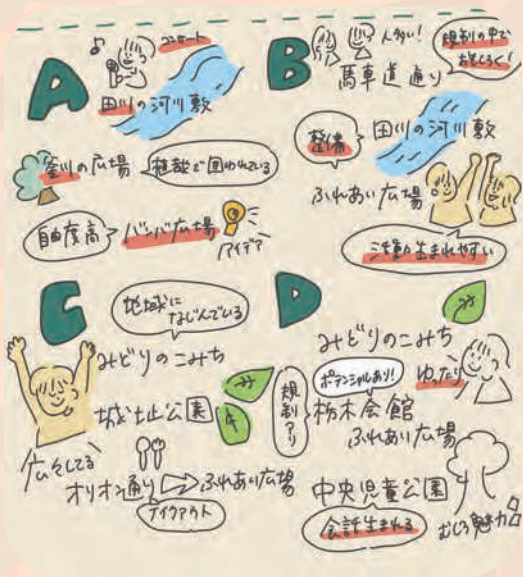 A
コンサート
田川の河川敷
釜川の広場
植栽で囲われている
自由度高
バンバ広場
アイデア
B
人多い!
馬車道通り
規制の中で
おもしろく!
整備
田川の河川敷
ふれあい広場
活動生まれやすい
C
地域に
なじんでいる
みどりのこみち
城址公園
広々してる
オリオン通り
ふれあい広場
テイクアウト
D
みどりのこみち
ポテンシャルあり!
ゆったり
規制アリ
栃木会館
ふれあい広場
中央児童公園
会話生まれる
むしろ魅力